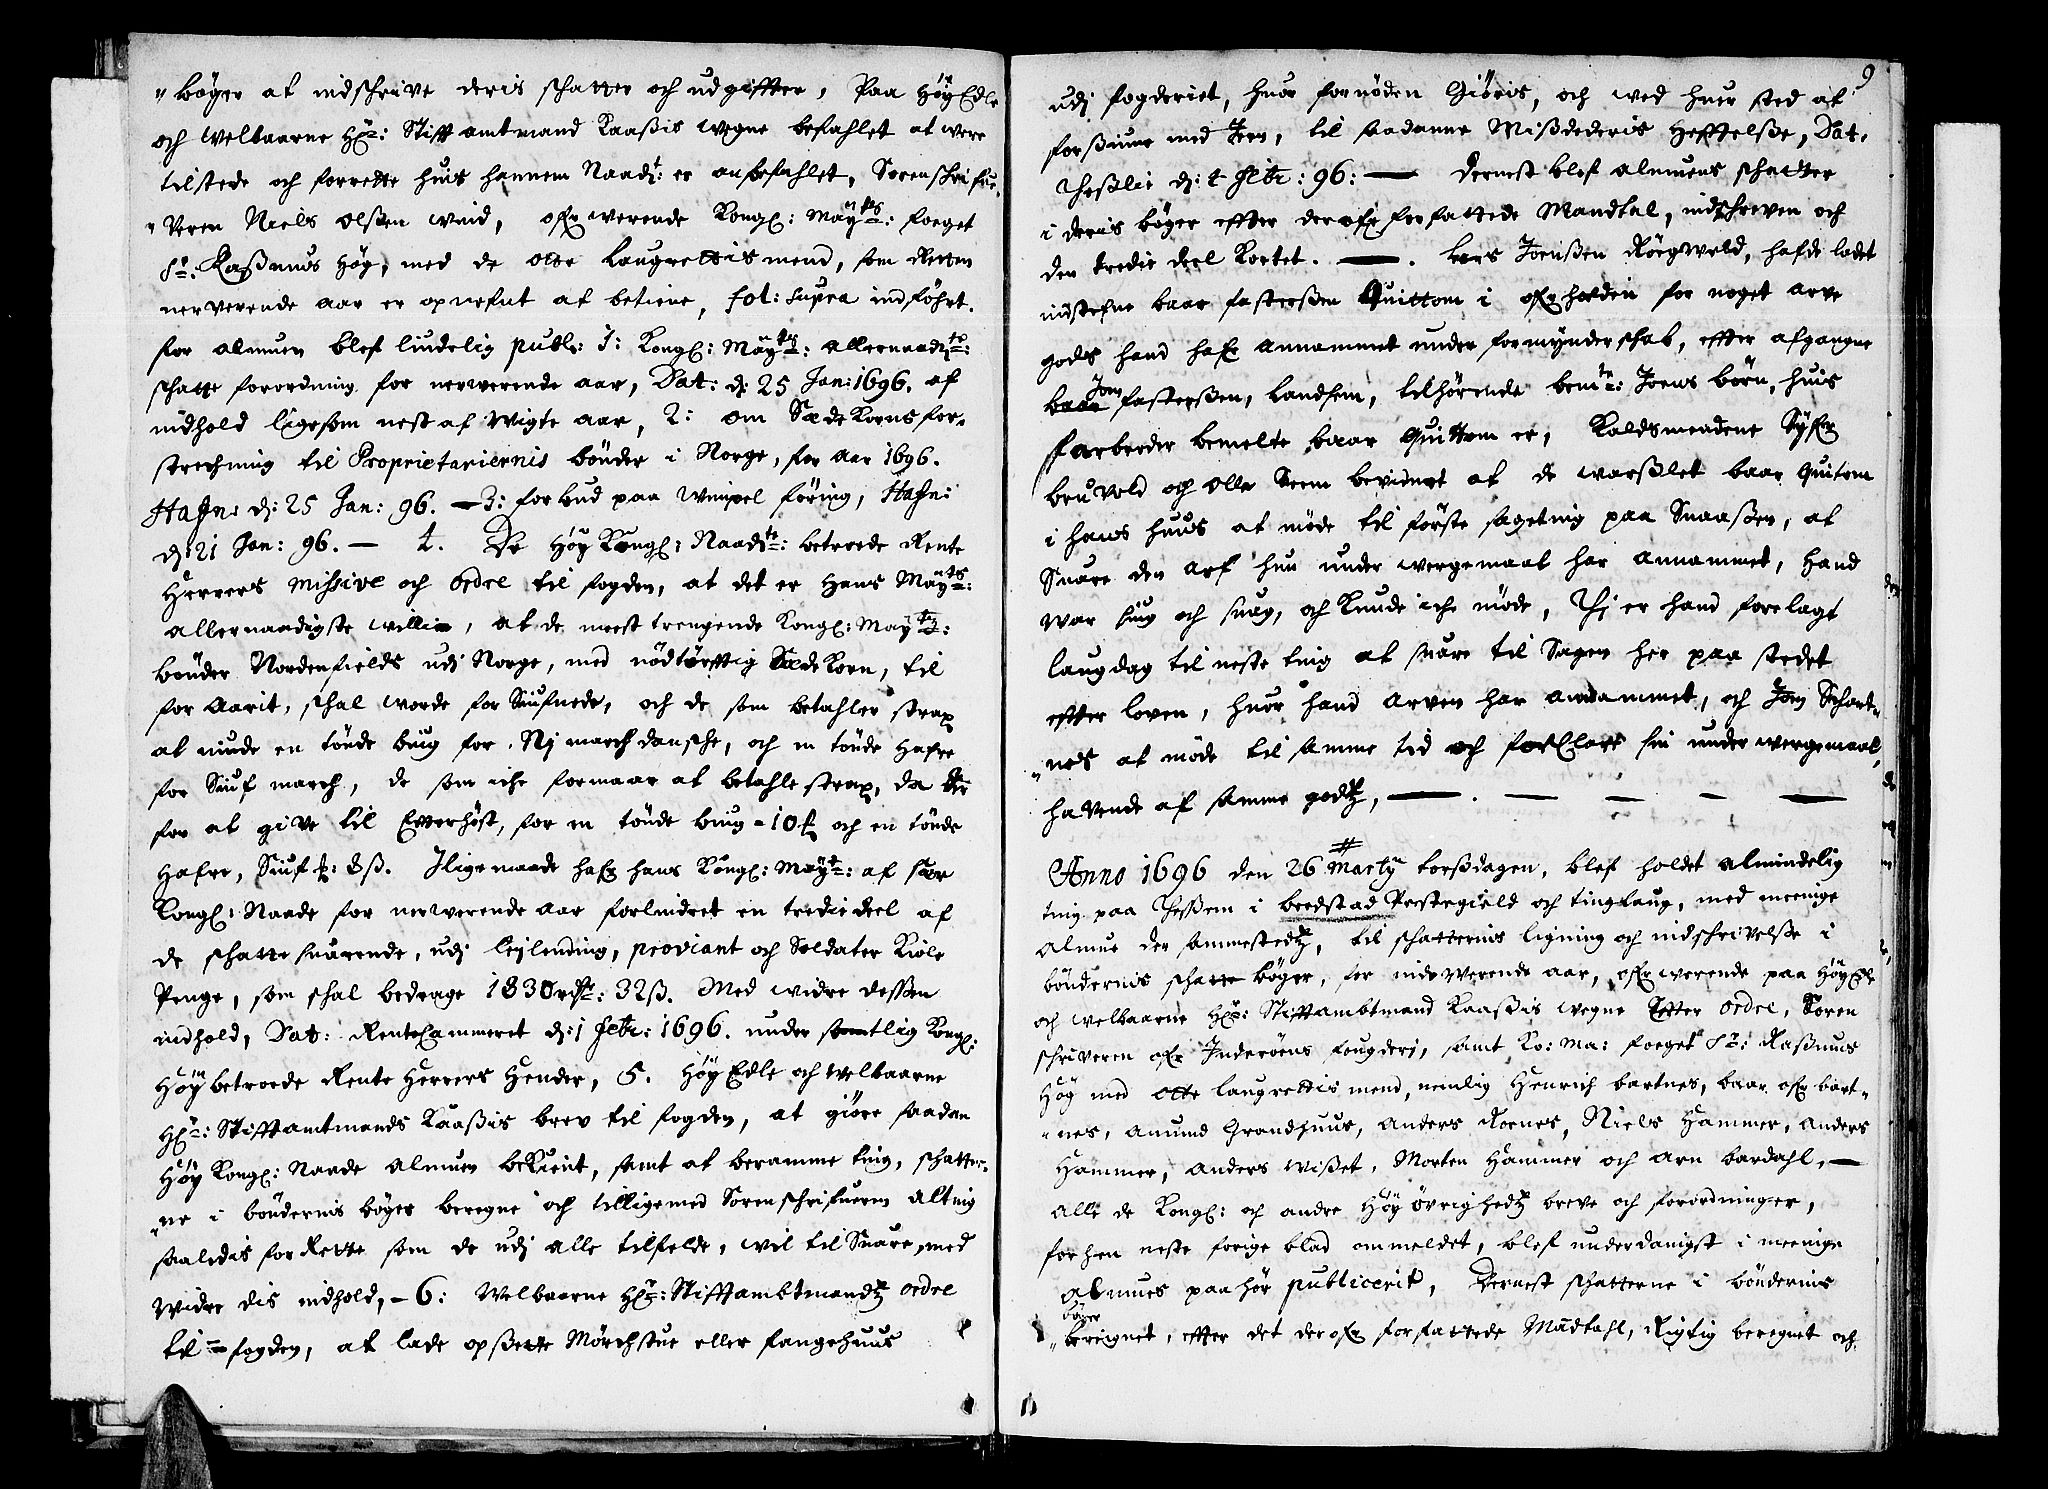 "bøger at indschrive deris schatter och udgiffter, Paa Høy Edle
och Welbaarne Hr: Stifft amtmand Kaaßis Wegne befahlet at were
tilstede och forrette huis hannem Naadt: er anbefahlet, Sorenschrifue,
"Veren Niels Olßen Wind, ofverwerende Kongl: Mayts: foeget
Sr: Raßmus Høg, med de Otte Laugrettis mend, som Retten
nerverende aar er opnefnt at betiene, fol: supra indføhrt.
for almuen blef liudelig publ: 1: Kongl: Mayts: allernaadigste
schatte forordning for nerwerende aar, Dat: d: 25 Jan: 1696. af
indhold ligesom nest af Wigte aar, 2: om Sæde Korns for-
strechning til Proprietariernis bønder i Norge, for Aar 1696.
Hafn: d: 25 Jan: 96. — 3: forbud paa Wimpel føring, Hafn:
d: 21 Jan: 96. — 4. De Høy Kongl: Naadte: betroede Rente
Herrers Missive och ordre til fogden, at det er Hans Mayts:
allernaadigste willie, at de meest trengende Kongl: Maytz:
bønder Nordenfields udj Norge, med nødtørfftig Sæde Korn, til
for Aarit, schal worde for Siufnede, och de som betahler strax
at niude en tønde biug for Nj march dansche, och en tønde Hafre
for Siuf march, de som iche formaar at betahle strax, da
for at give til Efterhøst, for en tønde biug = 10 och en tønde
Hafre, Siuf : 8ß. Ilige maade hafr hans Kongl: Mayt: af stor
Kongl: Naade for nerwerende aar forlindret en tredie deel af
de schatte suarende, udj leylending, proviant och Soldater Kiole
Penge, som schal bedrage 1830 : 32ß. Med widre dessen
indhold, Dat: RenteCammeret d: 1 Febr: 1696. under samtlig Kongl:
Høybetroede Rente Herrers Hender, 5. Høy Edle och Welbaarne
Hr: Stifftamtmands Kaaßis brev til fogden, at giøre saadan
Høy Kongl: Naade Almuen bekient, samt at beramme ting, schatter-
"ne i bøndernis bøger beregne och tilligemed Sorenschrifueren alting
saaledis forRette som de udj alle tilfelde, wil til Suare, med
Widre dis indhold, – 6: Welbaarne Hr: Stifftambtmandtz ordre
til fogden, at lade opßette Mørchstue eller fangehuus
9
udj fogderiet, huor fornøden Giøris, och wed huer sted at
forßiune med Jern, til saadanne Mißdederis Hefftelße, Dat.
d: 4 Febr: 96: — Dernest blef almuens schatter
i deris bøger effter der ofver forfattede Mandtal, indschreven och
den tredie deel Kortet. — . Lars Joenßen Røegweld, hafde ladet
indstefne baar fasterßen Quittom i ofverhalden for noget arve
gods hand hafr annammet under formynderschab, effter afgangne
Joen fasterßen, Landsem, tilhørende bemte: Joens børn, huis
farbroder bemelte baar Quittom er, Kaldsmendene Syfr
bruvold och Olle Seem bevidnet at de warßlet baar Quitom
i hans huus at møde til første sageting paa Snaaßen, at
Suare den Arf hun under wergemaal har annammet, Hand
war siug och suag, och Kunde iche møde, Thj er hand forelagt
laugdag til neste ting at suare til Sagen her paa stedet
effter loven, huor hand arven har annammet, och Joen Schart-
"nes at møde til samme tid och forClare sin underwergemaal,
havende af samme godtz, — . — — — —
Anno 1696 den 26 Marty torßdagen, blef holdet almindelig
ting paa i beedstad Præstegield och tinglaug, med meenige
Almue der sammestedtz, til schatternis ligning och indschrivelße i
bøndernis schatte bøger, for indewerende aar, ofverwerende paa Høy Edle
och welbaarne Hr: Stifftambtmand Kaaßis wegne Effter ordre, Soren
schriveren ofver Inderøens fougderj, samt Ko: Ma: foeget Sr: Raßmus
Høg med otte laugrettis mend, nemlig Henrich bartnes, baar ofr bart-
"nes, Amund Grandhuus, Anders Roenes, Niels Hammer, Anders
Hammer, Anders Wißet, Morten Hammer och Arn bardahl, —
Alle de Kongl: och andre Høy Øvrighedtz breve och forordninger,
forhen neste forige blad ommeldet, blef underdanigst i meenige
Almues paahør publicerit, Dernest schatterne i bøndernis
bøger
"bereignet, effter det der ofver forfattede Mandtahl, Rigtig beregnet och